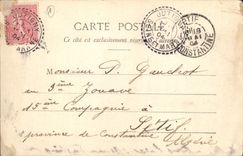 CARTE POSTALE
Ce côté est exclusivement réservé
CONSTANTINE
Monsieur P. Gaudrot
au 3ème Zouave
15ème Compagnie à
Sétif
province de Constantine
Algérie